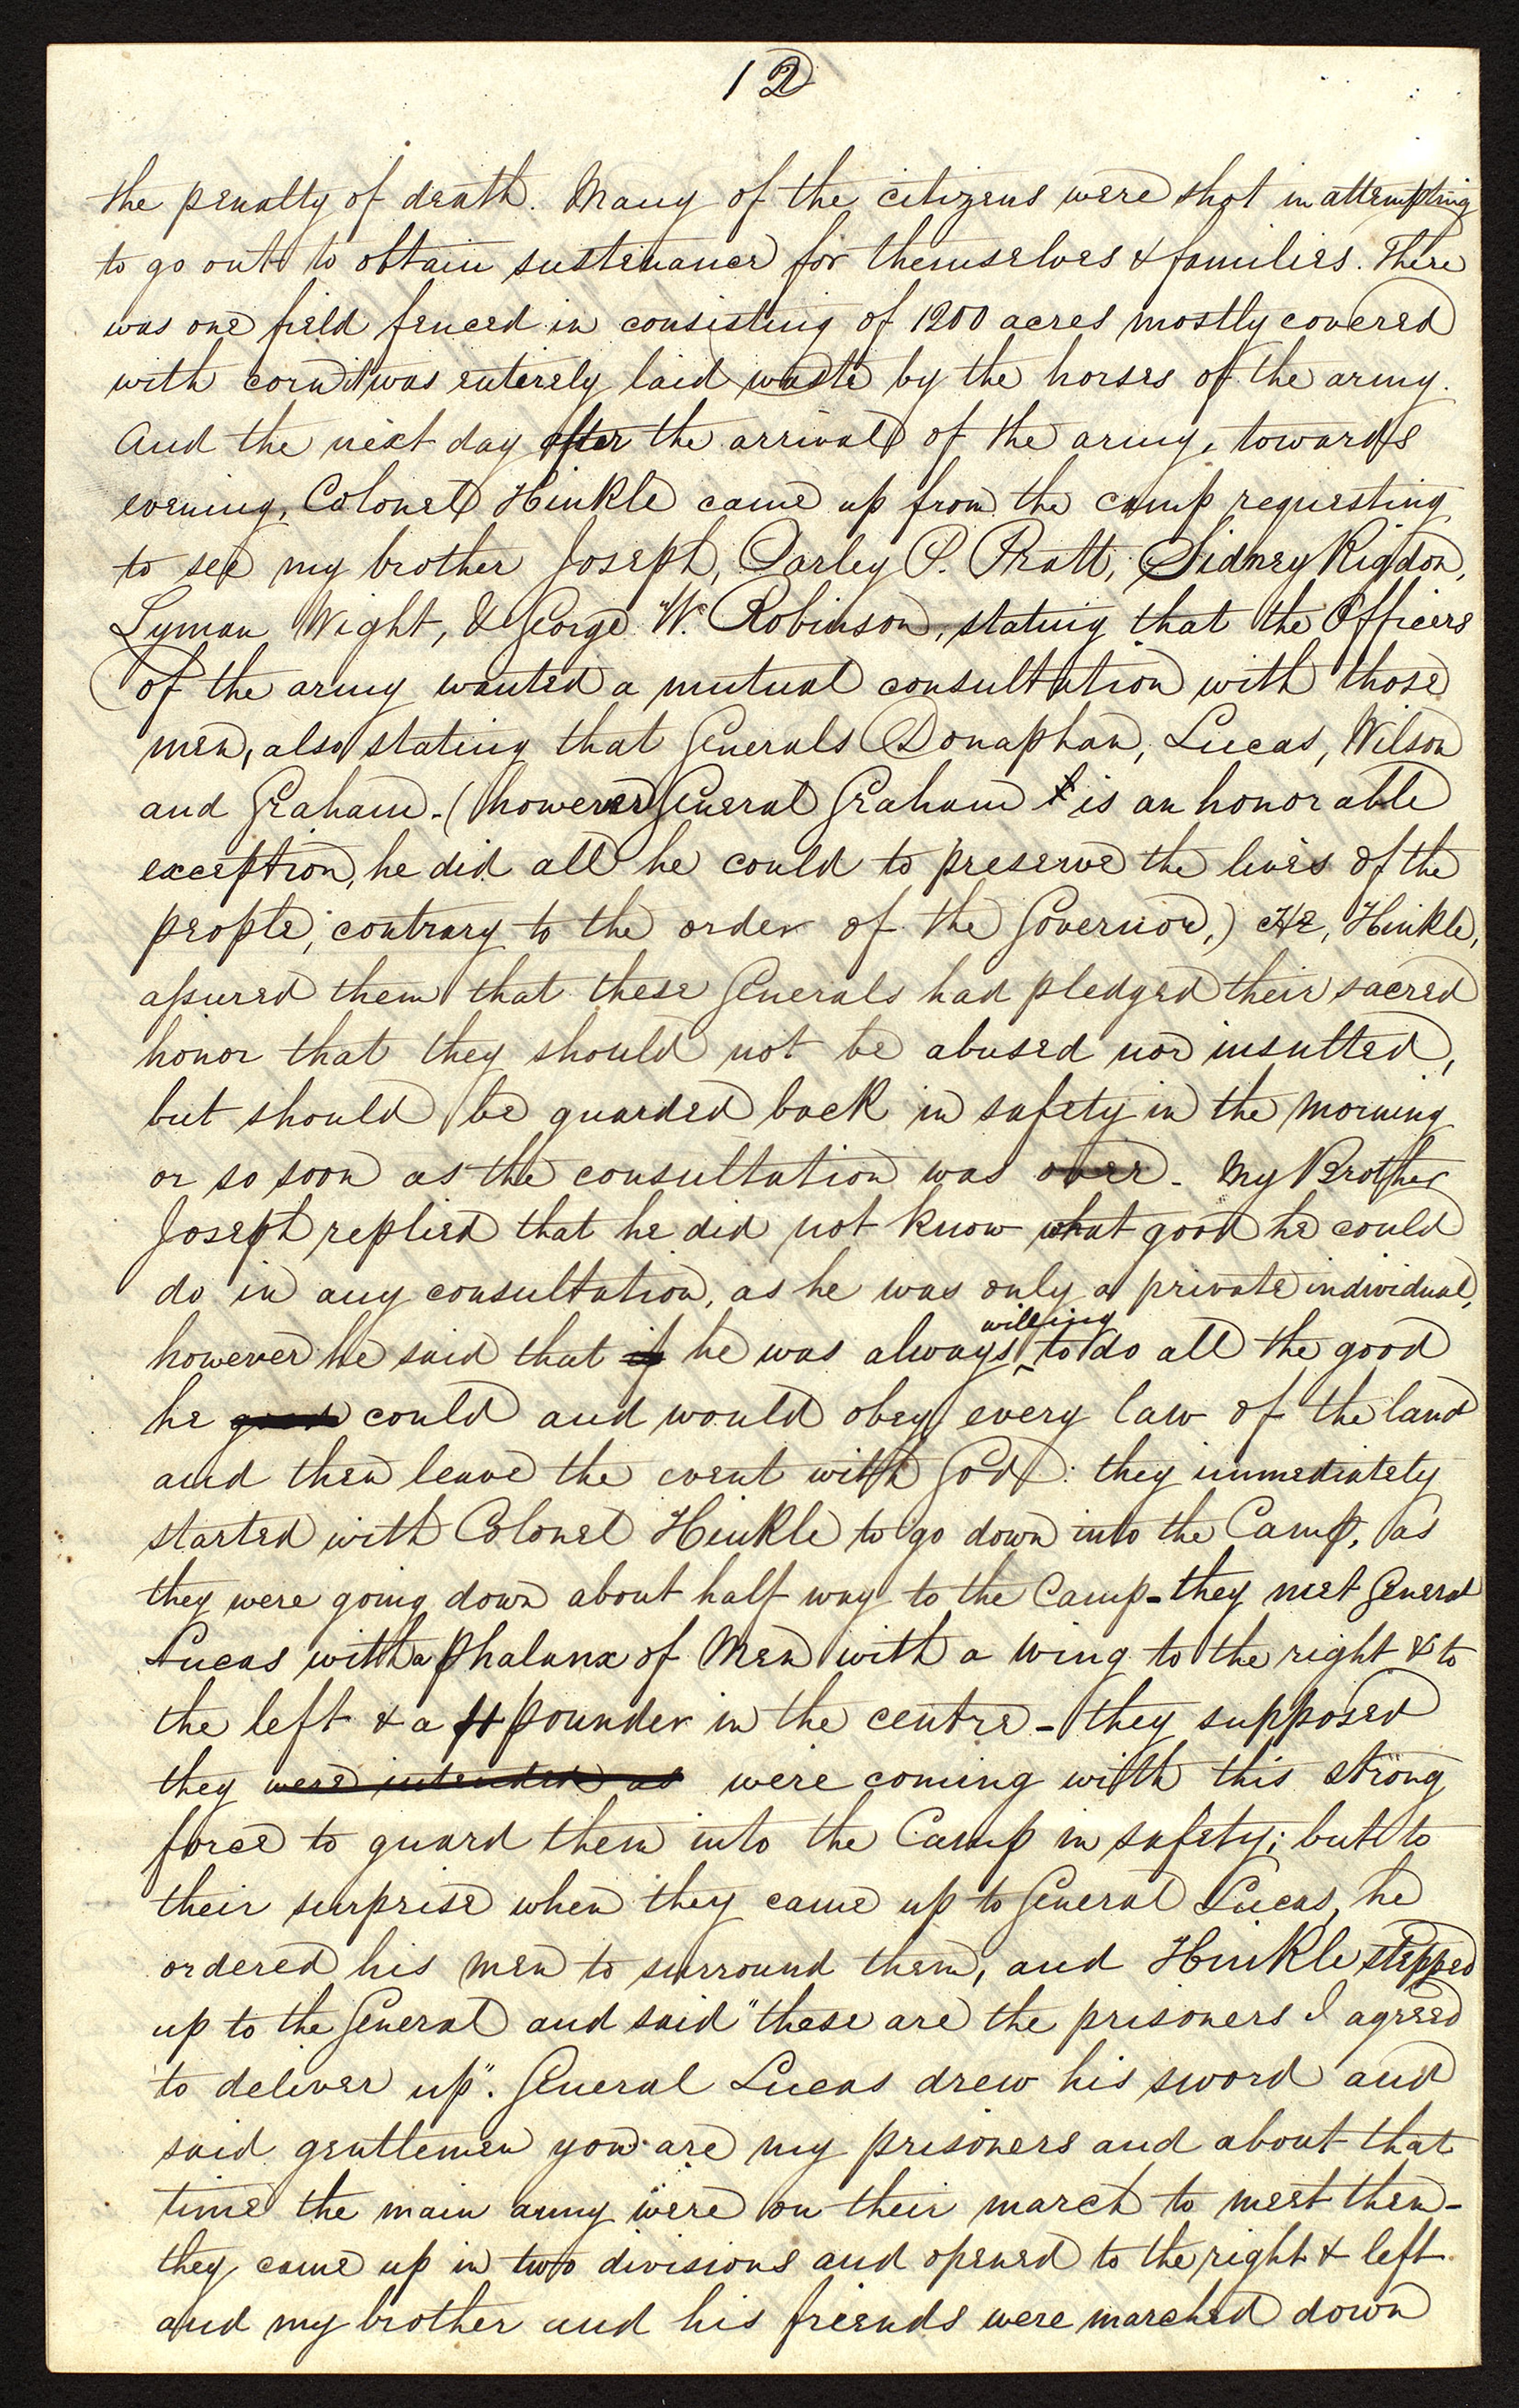 12
the penalty of death. Many of the citizens were shot in attempting
to go out to obtain sustenance for themselves & families. There
was one field fenced in consisting of 1200 acres mostly covered
with corn it was entirely laid waste by the horses of the army.
And the next day after the arrival of the army, towards
evening, Colonel Hinkle came up from the camp requesting
to see my brother Joseph, Parley P. Pratt, Sidney Rigdon,
Lyman Wight, & George W. Robinson, stating that the Officers
of the army wanted a mutual consultation with those
men, also stating that Generals Donaphan, Lucas, Wilson
and Graham - (however General Graham is an honorable
exception, he did all he could to preserve the lives of the
people, contrary to the order of the Governor,) He, Hinkle,
assured them that these Generals had pledged their sacred
honor that they should not be abused nor insulted,
but should be guarded back in safety in the morning
or so soon as the consultation was over - My Brother
Joseph replied that he did not know what good he could
do in any consultation, as he was only a private individual,
however he said that if he was always willing to do all the good
he good could and would obey every law of the land
and then leave the event with God: they immediately
started with Colonel Hinkle to go down into the Camp, as
they were going down about half way to the Camp - they met General
Lucas with a phalanx of Men with a wing to the right & to
the left & a 4 pounder in the centre - they supposed
they were intended as were coming with this strong
force to guard them into the Camp in safety; but to
their surprise when they came up to General Lucas, he
ordered his men to surround them, and Hinkle stepped
up to the General and said "these are the prisoners I agreed
to deliver up". General Lucas drew his sword and
said gentlemen you are my prisoners and about that
time the main army were on their march to meet them -
they came up in two divisions and opened to the right & left
and my brother and his friends were marched down